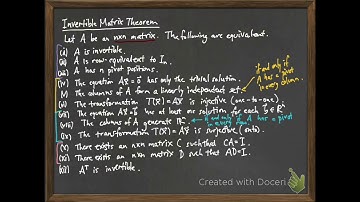 Invertible Matrix Theorem
Let A be an nxn matrix. The following are equivalent.
(i) A is invertible.
(ii) A is row-equivalent to In.
(iii) A has n pivot positions.
(iv) The equation Ax = 0 has only the trivial solution.
(v) The columns of A form a linearly independent set.
(vi) The transformation T(x) = Ax is injective (one-to-one)
(vii) The equation Ax = b has at least one solution for each b ∈ Rn
(viii) The columns of A generate Rn.
(ix) The transformation T(x) = Ax is surjective (onto).
(x) There exists an nxn matrix C such that CA = I.
(xi) There exists an nxn matrix D such that AD = I.
(xii) AT is invertible.
if and only if
A has a pivot
in every column.
if and only if A has a pivot
in every
Created with Doceri